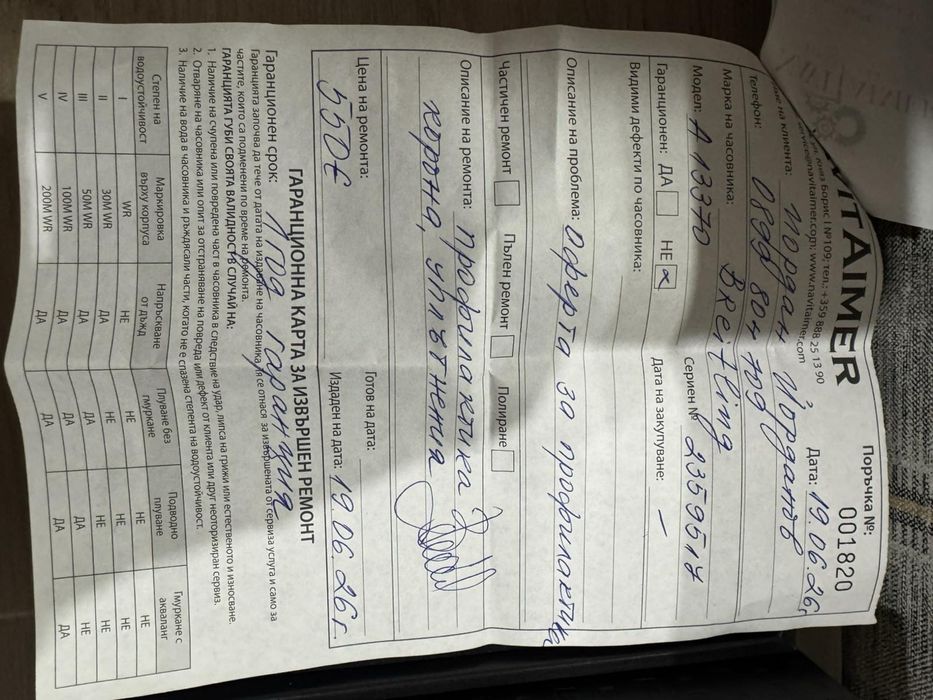 VITAIMER
Княз Борис I №109; тел.: +359 888 25 13 90
service@navitaimer.com; www.navitaimer.com
Поръчка №:
001820
Дата: 19.06.26г
име на клиента: Йордан Йорданов
Телефон:
Марка на часовника: Breitling
Модел: A 13370 Сериен № 2359514
Гаранционен: ДА НЕ x Дата на закупуване: –
Видими дефекти по часовника:
Описание на проблема: Оферта за профилактика
Частичен ремонт Пълен ремонт Полиране
Описание на ремонта: профилактика
корона, уплътнения
Цена на ремонта: Готов на дата:
550€ Издаден на дата: 19.06.26г.
ГАРАНЦИОННА КАРТА ЗА ИЗВЪРШЕН РЕМОНТ
Гаранционен срок: 1 год гаранция
Гаранцията започва да тече от датата на издаване на часовника и се отнася за извършената от сервиза услуга и само за
частите, които са подменени по време на ремонта.
ГАРАНЦИЯТА ГУБИ СВОЯТА ВАЛИДНОСТ В СЛУЧАЙ НА:
1. Наличие на счупена или повредена част в часовника в следствие на удар, липса на грижи или естественото и износване.
2. Отваряне на часовника или опит за отстраняване на повреда или дефект от клиента или друг неоторизиран сервиз.
3. Наличие на вода в часовника и ръждясали части, когато не е спазена степента на водоустойчивост.
Степен на водоустойчивост Маркировка върху корпуса Напръскване от дъжд Плуване без гмуркане Подводно плуване Гмуркане с акваланг
I WR НЕ НЕ НЕ НЕ
II 30M WR ДА НЕ НЕ НЕ
III 50M WR ДА ДА НЕ НЕ
IV 100M WR ДА ДА ДА НЕ
V 200M WR ДА ДА ДА ДА